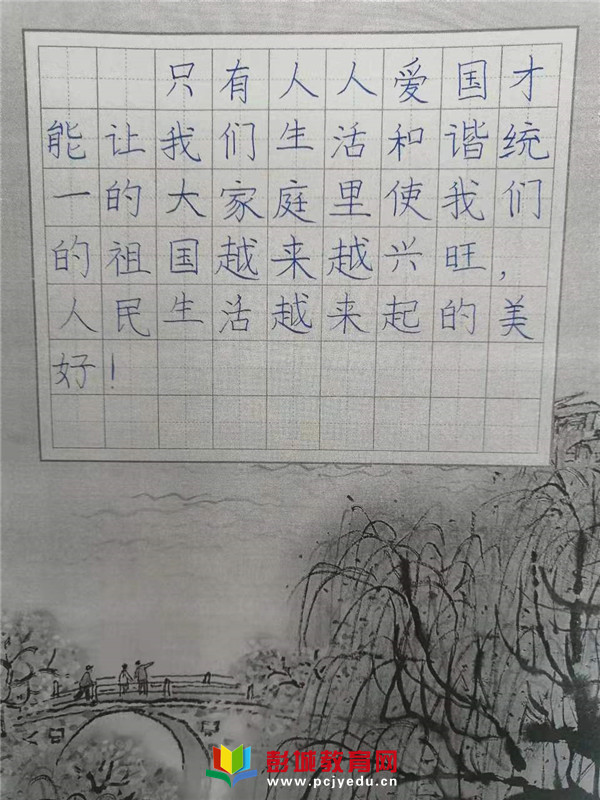 只有人人爱国才
能让我们生活和谐统
一的大家庭里使我们
的祖国越来越兴旺，
人民生活越来起的美
好！
彭城教育网
www.pcjyedu.cn